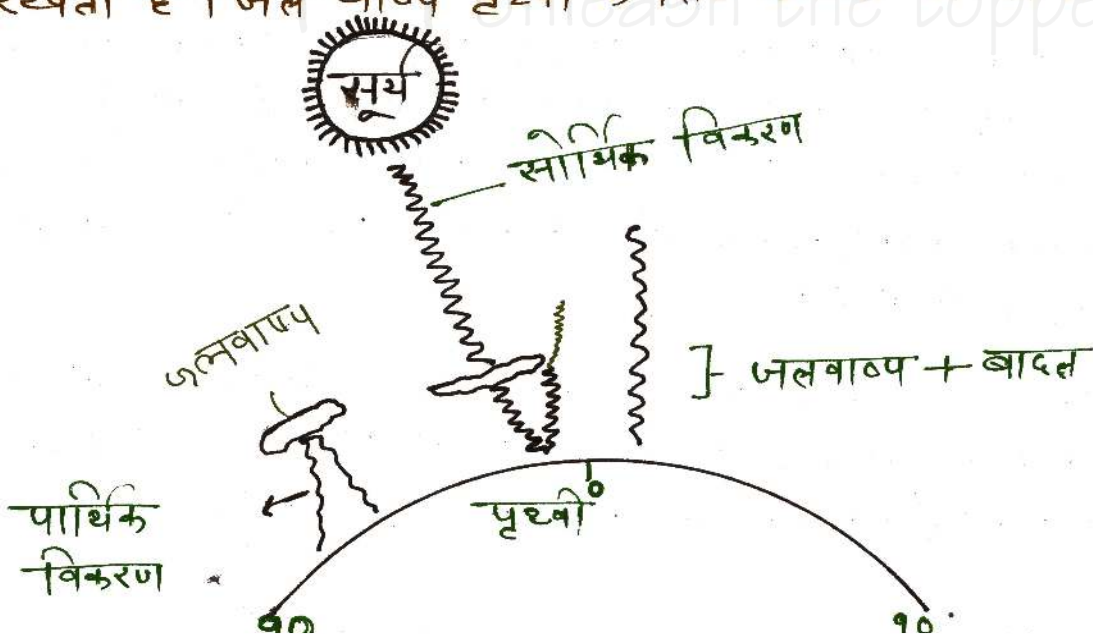 है । जल वाष्प
unleash the toppe
सूर्य
सौर्थिक विकरण
जलवाष्प
जलवाष्प + बादल
पार्थिक
विकरण
पृथ्वी
0
90
90